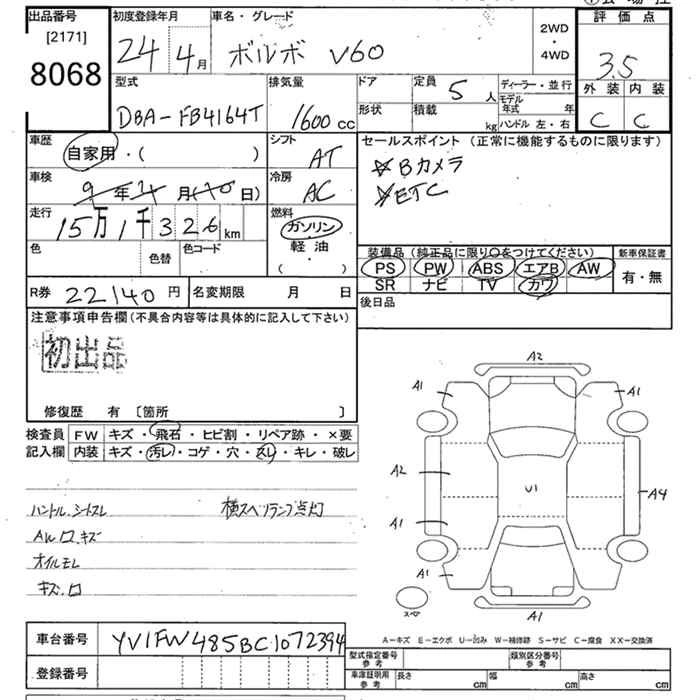 出品番号
[2171]
8068
初度登録年月
24 4月
車名・グレード
ボルボ V60
2WD
・
4WD
評価点
3.5
外装 内装
C C
型式
DBA-FB4164T
排気量
1600cc
ドア
定員 5人
形状
積載 kg
ディーラー・並行
モデル年式 年
ハンドル 左・右
車歴
自家用・( )
シフト
AT
車検
年 月( 日)
冷房
AC
走行
15万1千326km
燃料
ガソリン
軽油
( )
色
色替
色コード
セールスポイント (正常に機能するものに限ります)
☆Bカメラ
☆ETC
装備品(純正品に限り○をつけてください)
PS PW ABS エアB AW
SR ナビ TV カワ
新車保証書
有・無
R券 22140円
名変期限 月 日
後日品
注意事項申告欄(不具合内容等は具体的に記入して下さい)
初出品
修復歴 有 〔箇所 〕
検査員記入欄
FW キズ・飛石・ヒビ割・リペア跡・×要
内装 キズ・汚レ・コゲ・穴・スレ・キレ・破レ
ハンドル.シートスレ
横スベリランプ点灯
AW ロ.キズ
オイルモレ
キズ.ロ
A2
A1
A1
A2
U1
A4
A1
A1
A1
スペア
A-キズ E-エクボ U-凹み W-補修跡 S-サビ C-腐食 XX-交換済
車台番号
YV1FW485BC1072394
登録番号
型式指定番号
参考
類別区分番号
参考
車庫証明用
参考
長さ cm
幅 cm
高さ cm